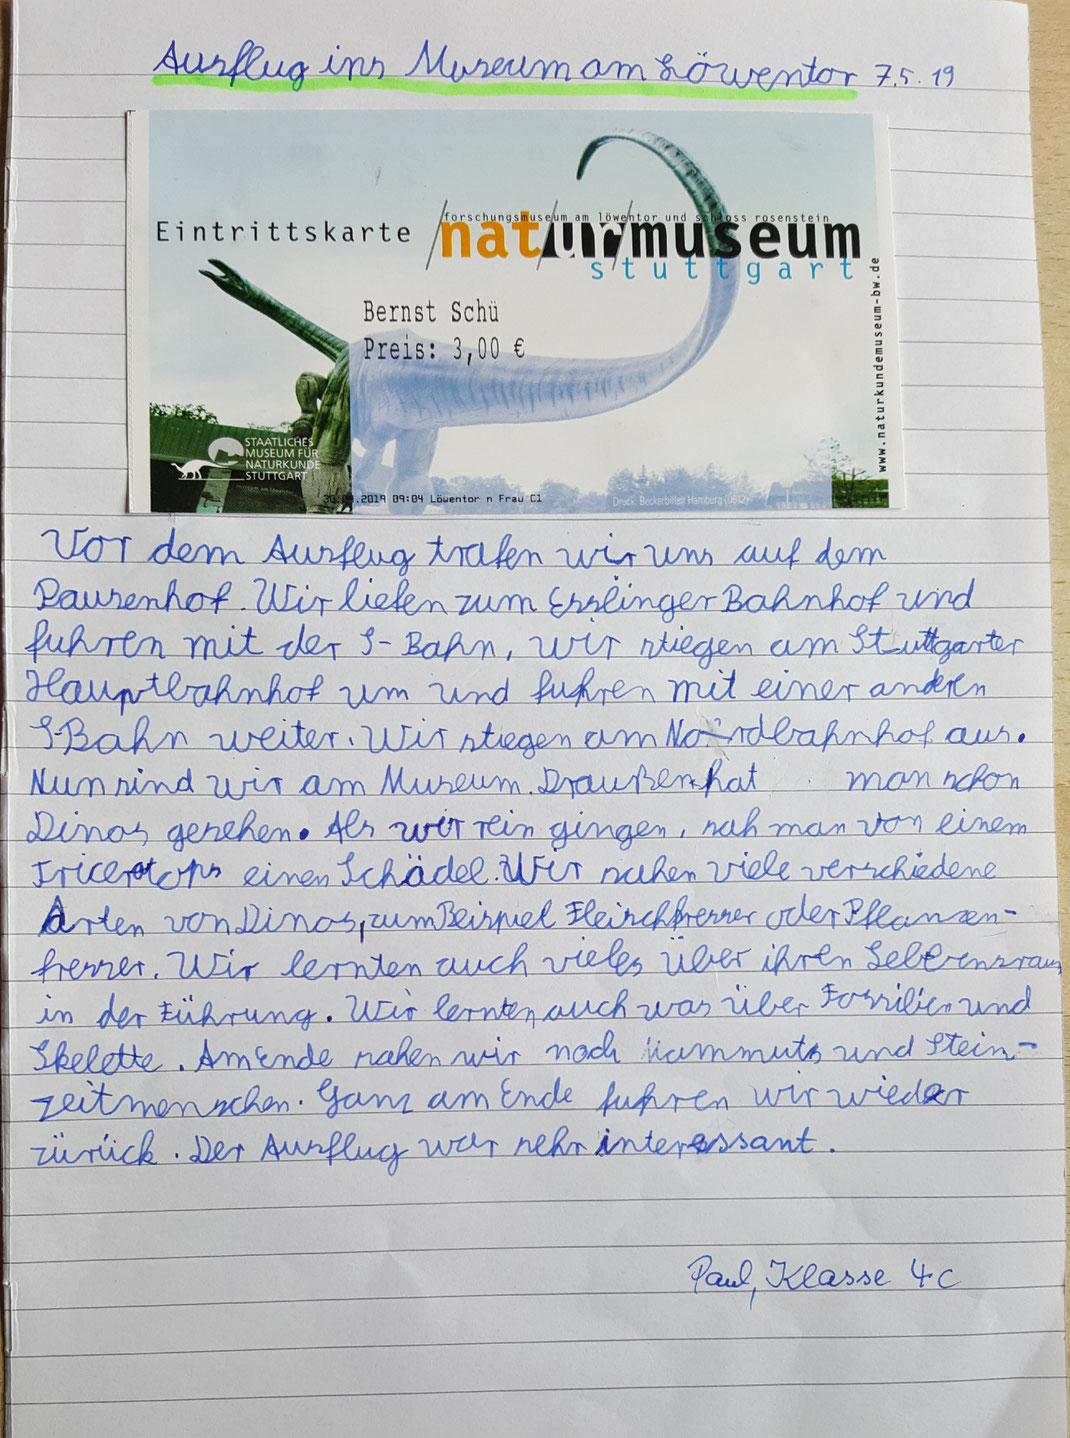 Ausflug ins Museum am Löwentor 7.5.19
Eintrittskarte
forschungsmuseum am löwentor und schloss rosenstein
naturmuseum
stuttgart
www.naturkundemuseum-bw.de
Bernst Schü
Preis: 3,00 €
STAATLICHES
MUSEUM FÜR
NATURKUNDE
STUTTGART
2019 09:04 Löwentor n Frau C1
Druck: Beckerbillett Hamburg
Vor dem Ausflug trafen wir uns auf dem
Pausenhof. Wir liefen zum Esslinger Bahnhof und
fuhren mit der S-Bahn, wir stiegen am Stuttgarter
Hauptbahnhof um und fuhren mit einer anderen
S-Bahn weiter. Wir stiegen am Nordbahnhof aus.
Nun sind wir am Museum. Draußen hat man schon
Dinos gesehen. Als wir rein gingen, sah man von einem
Triceratops einen Schädel. Wir sahen viele verschiedene
Arten von Dinos, zum Beispiel Fleischfresser oder Pflanzen-
fresser. Wir lernten auch vieles über ihren Lebensraum
in der Führung. Wir lernten auch was über Fossilien und
Skelette. Am Ende sahen wir noch Mammuts und Stein-
zeitmenschen. Ganz am Ende fuhren wir wieder
zürück. Der Ausflug war sehr interessant.
Paul, Klasse 4c